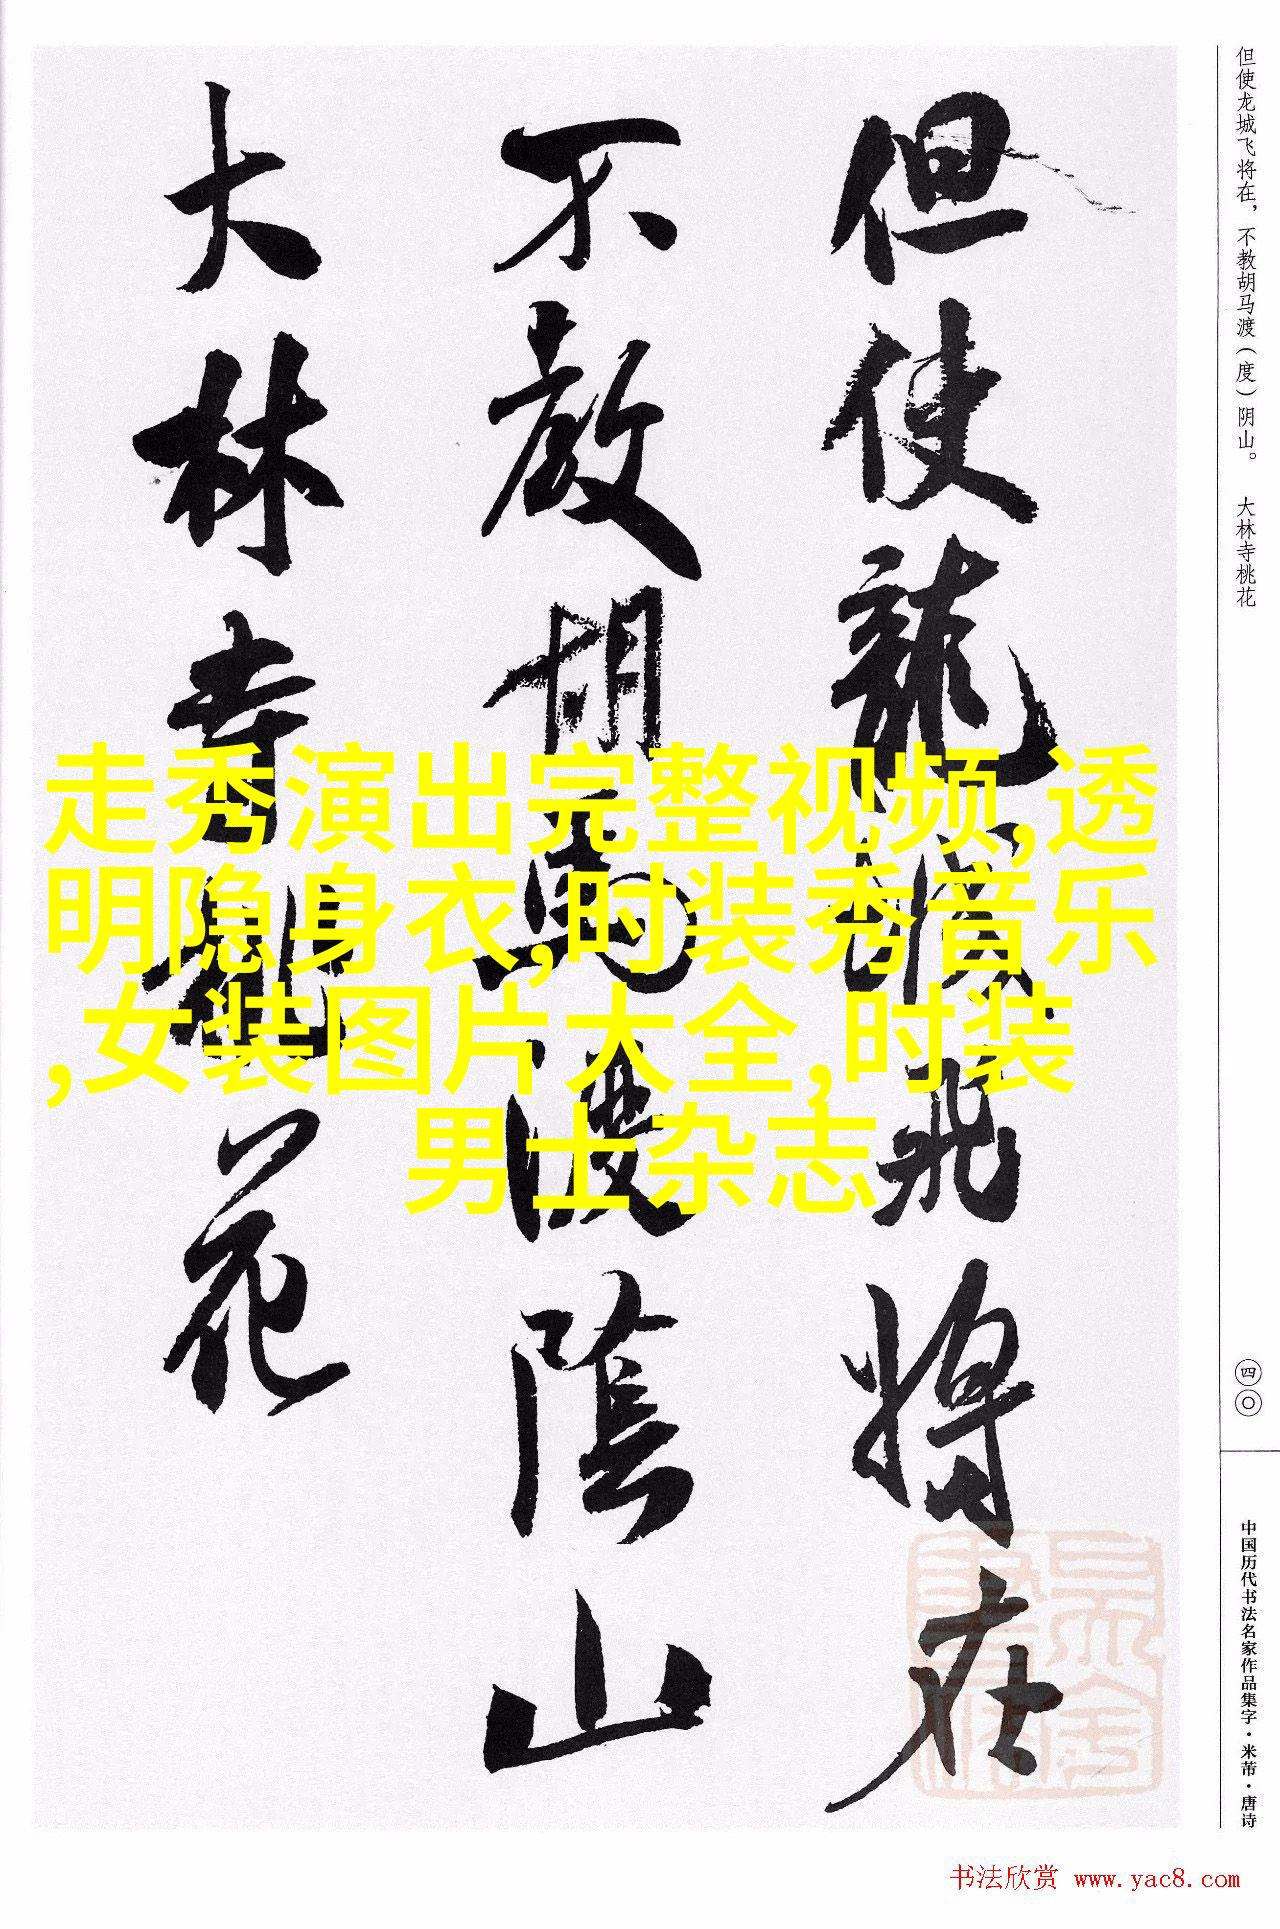 但使龍城飛將在
不教胡馬渡陰山
大林寺桃花
走秀演出完整视频,透
明隐身衣,时装秀音乐
,女装图片大全,时装
男士杂志
但使龙城飞将在，不教胡马渡（度）阴山。 大林寺桃花
四〇
中国历代书法名家作品集字·米芾·唐诗
书法欣赏 www.yac8.com